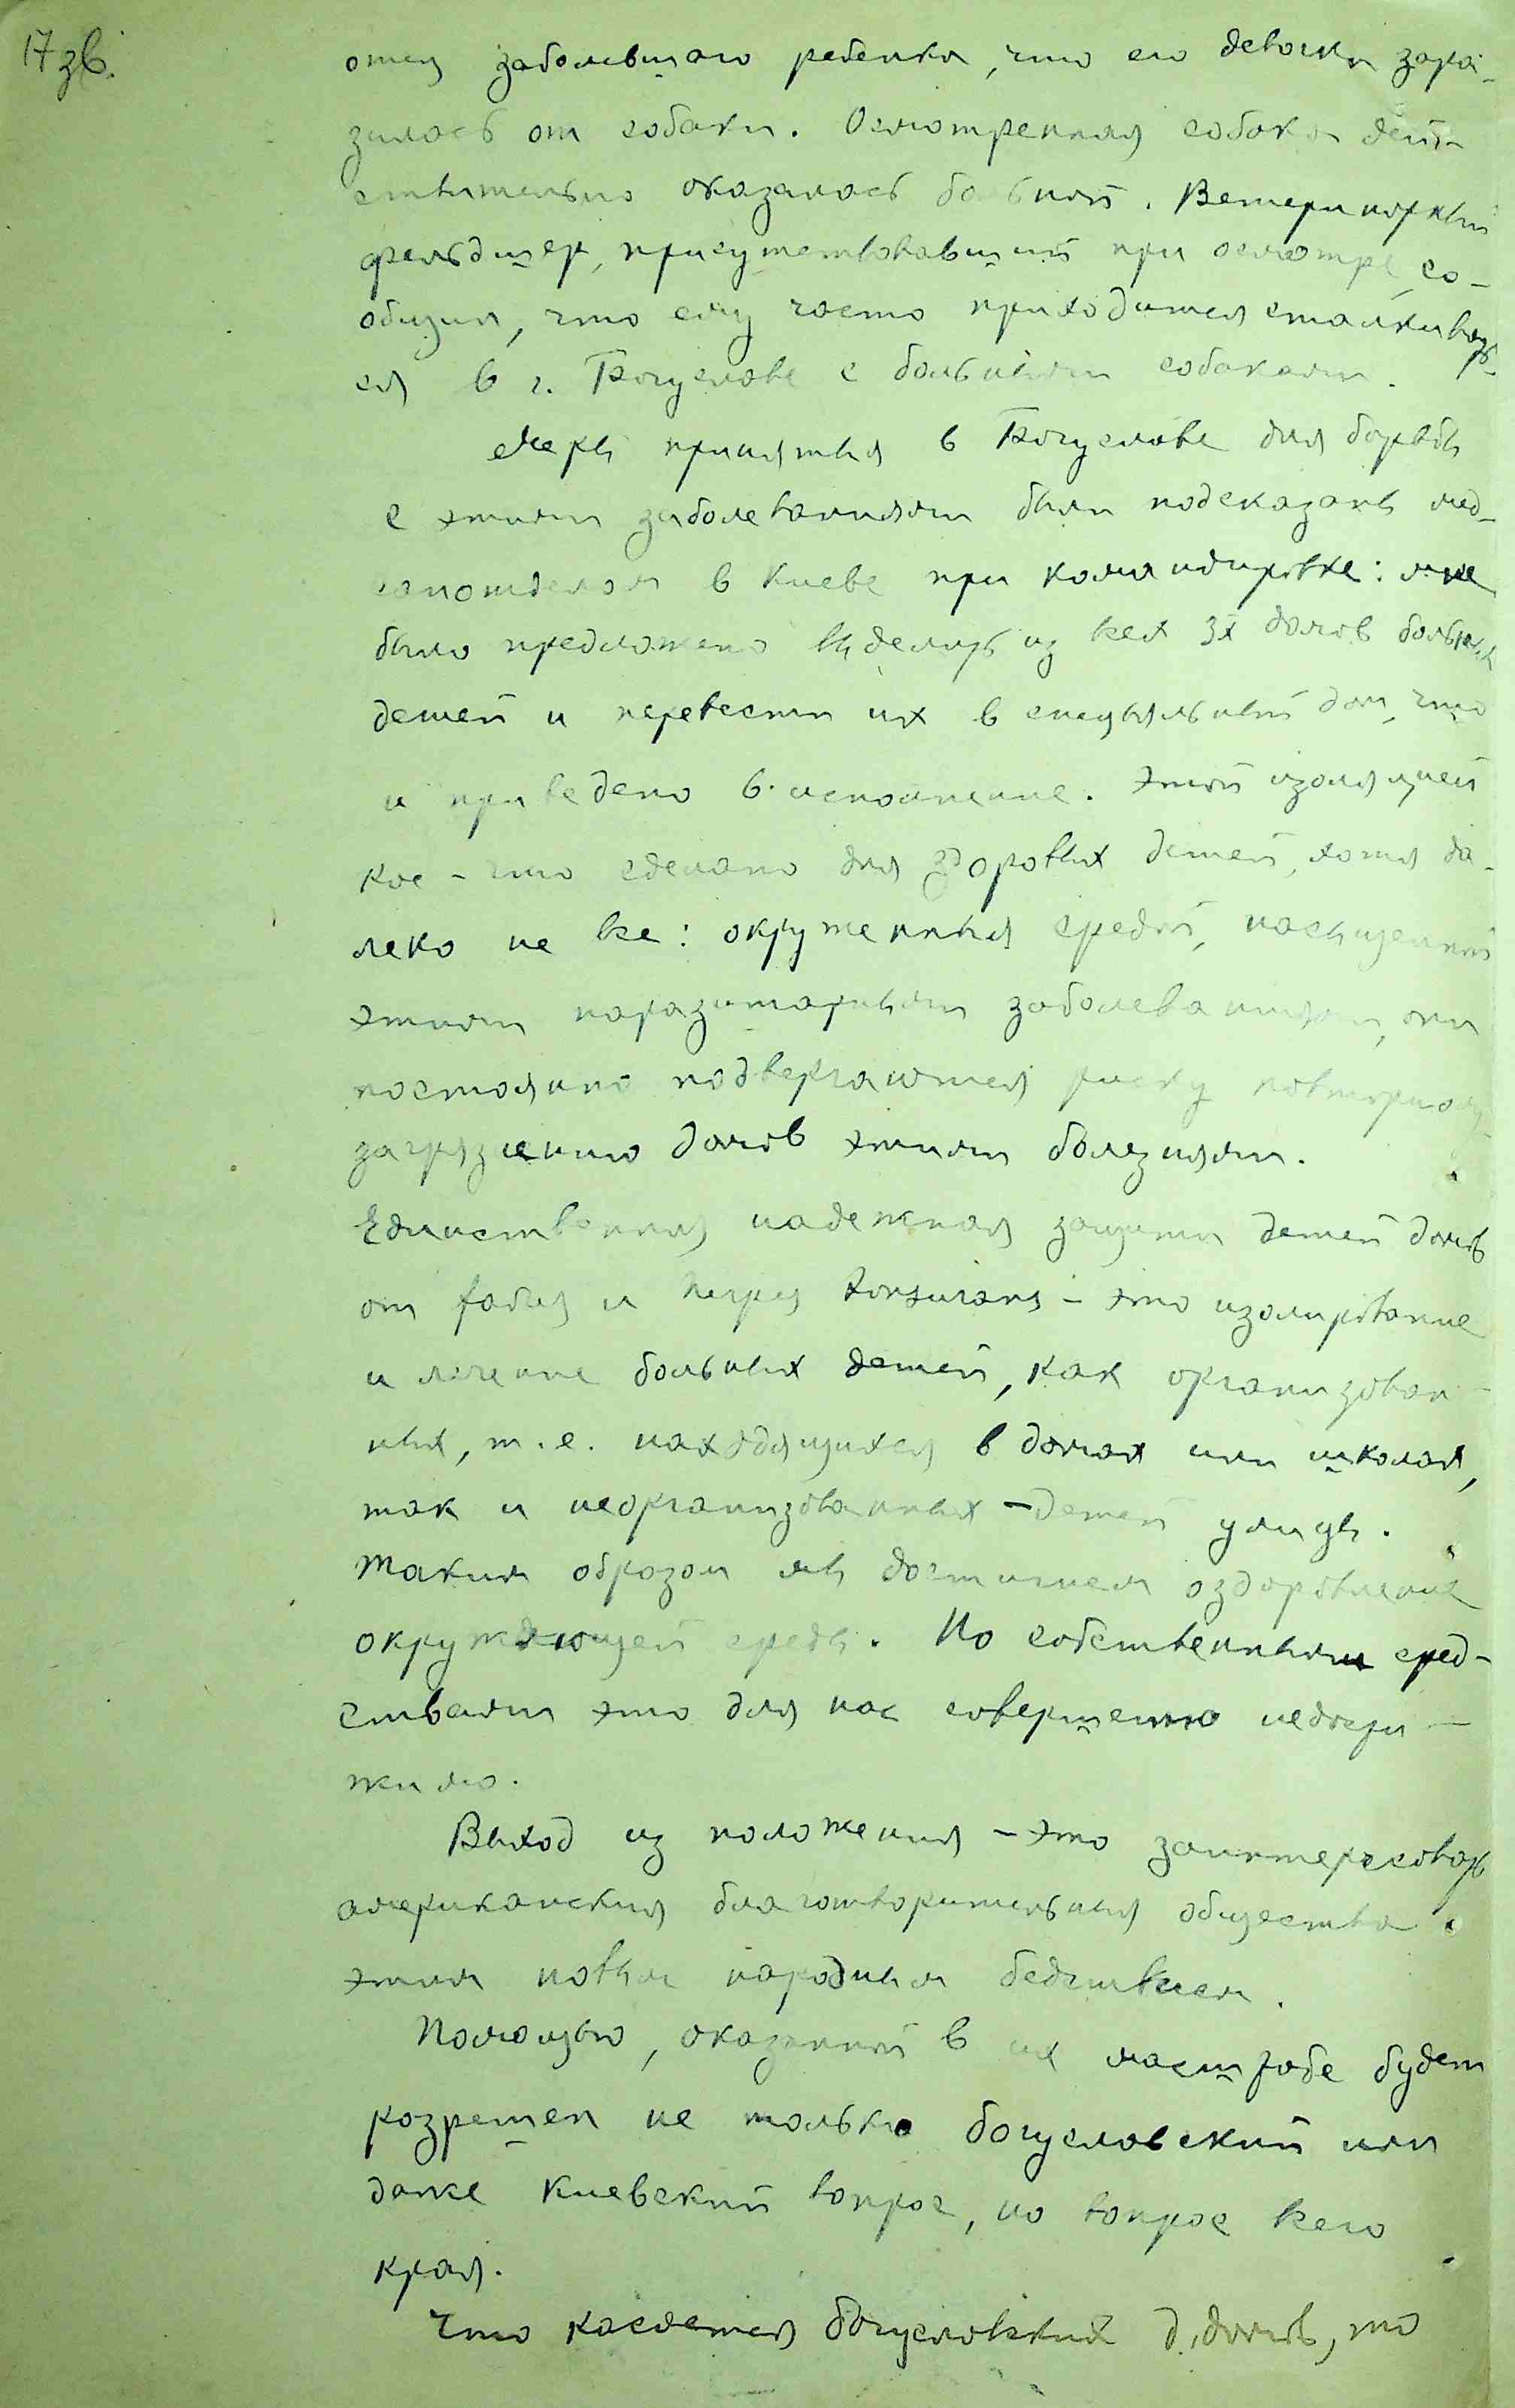 17зв.
отец заболевшаго ребенка, что его девочка зара-
зилась от собаки. Осмотренная собака дей-
ствительно оказалась больной. Ветеринарный
фельдшер, присутствовавший при осмотре, со-
общил, что ему часто приходится сталкивать-
ся в г. Богуславе с больными собаками.
Меры принятыя в Богуславе для борьбы
с этими заболеваниями были подсказаны мед-
санотделом в Киеве при командировке: мне
было предложено выделить из всех 3х домов больных
детей и перевести их в специальный дом, что
и приведено в исполнение. Этой изоляцией
кое-что сделано для здоровых детей, хотя да-
леко не все: окруженныя средой, насыщенной
этими паразитарными заболеваниями, они
постоянно подвергаются риску повторному
загрязнению домов этими болезнями.
Единственная надежная защита детей домов
от favus и herpes tonsurans - это изолирование
и лечение больных детей, как организован-
ных, т.е. находящихся в домах или школах,
так и неорганизованных - детей улицы.
Таким образом мы достигнем оздоровление
окружающей среды. Но собственными сред-
ствами это для нас совершенно недости-
жимо.
Выход из положения - это заинтересовать
американския благотворительныя общества
этим новым народным бедствием.
Помощью, оказанной в их масштабе будет
разрешен не только богуславский или
даже Киевский вопрос, но вопрос всего
края.
Что касается богуславских д. домов, то